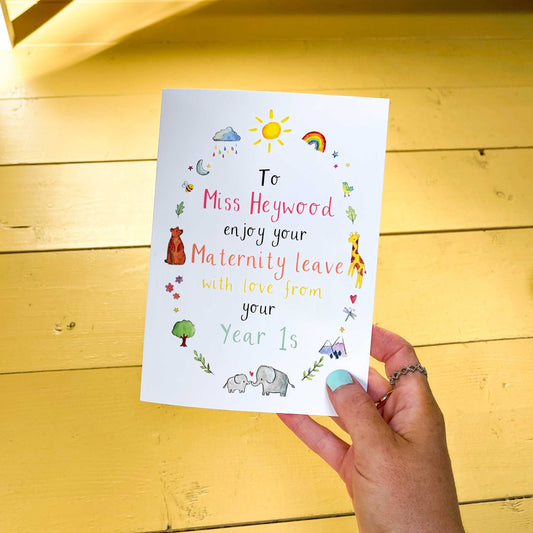 To
Miss Heywood
enjoy your
Maternity leave
with love from
your
Year 1s